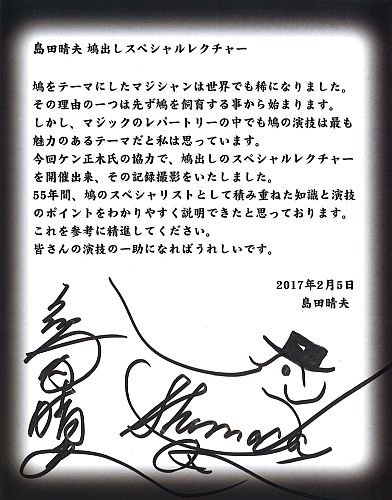 島田晴夫 鳩出しスペシャルレクチャー
鳩をテーマにしたマジシャンは世界でも稀になりました。
その理由の一つは先ず鳩を飼育する事から始まります。
しかし、マジックのレパートリーの中でも鳩の演技は最も
魅力のあるテーマだと私は思っています。
今回ケン正木氏の協力で、鳩出しのスペシャルレクチャー
を開催出来、その記録撮影をいたしました。
55年間、鳩のスペシャリストとして積み重ねた知識と演技
のポイントをわかりやすく説明できたと思っております。
これを参考に精進してください。
皆さんの演技の一助になればうれしいです。
2017年2月5日
島田晴夫
島田晴夫
Shimada